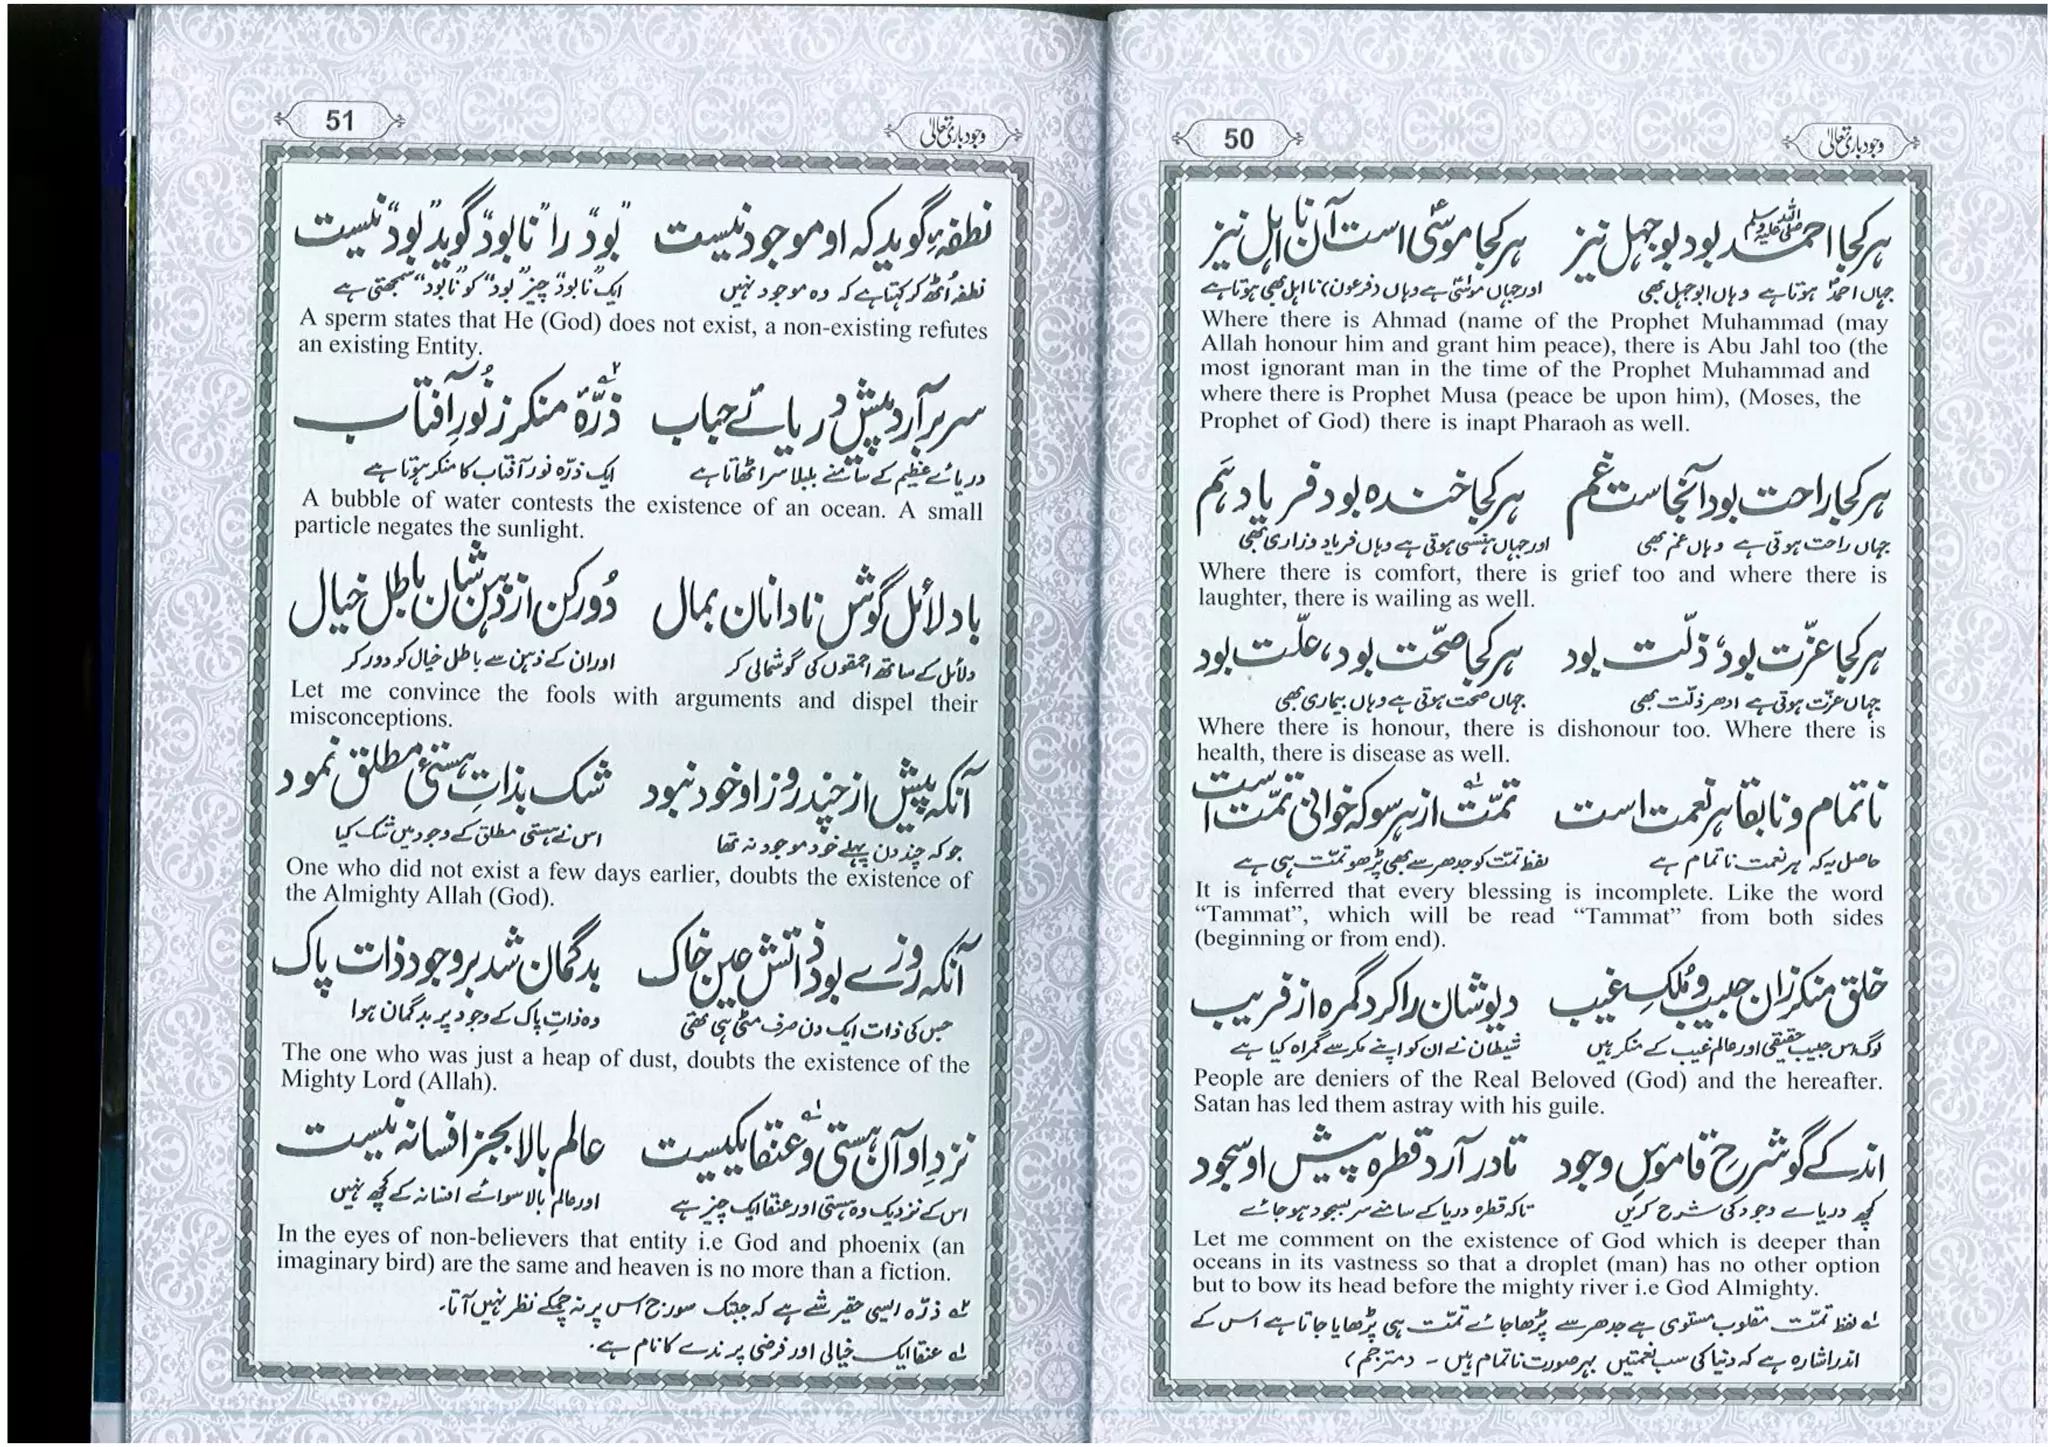 50
وجود باری تعالیٰ
ہر کجا احمد ﷺ بود بوجہل نیز ہر کجا موسیٰؑ است آں نااہل نیز
جہاں احمدؐ ہوتا ہے وہاں ابوجہل بھی اور جہاں موسیٰؑ ہے وہاں (فرعون) نااہل بھی ہوتا ہے
Where there is Ahmad (name of the Prophet Muhammad (may
Allah honour him and grant him peace), there is Abu Jahl too (the
most ignorant man in the time of the Prophet Muhammad and
where there is Prophet Musa (peace be upon him), (Moses, the
Prophet of God) there is inapt Pharaoh as well.
ہر کجا راحت بود آنجاست غم ہر کجا خندہ بود فریاد ہَم
جہاں راحت ہوتی ہے وہاں غم بھی اور جہاں ہنسی ہوتی ہے وہاں فریاد وزاری بھی
Where there is comfort, there is grief too and where there is
laughter, there is wailing as well.
ہر کجا عزّت بود، ذلّت بود ہر کجا صحّت بود، علّت بود
جہاں عزّت ہوتی ہے ادھر ذلّت بھی جہاں صحت ہوتی ہے وہاں بیماری بھی
Where there is honour, there is dishonour too. Where there is
health, there is disease as well.
ناتمام و نابقا ہر نعمت است تمّت ؎۱ از ہر سو کہ خوانی تمّت است
حاصل یہ کہ ہر نعمت ناتمام ہے لفظ تمّت کو جدھر سے بھی پڑھو تمّت ہی ہے
It is inferred that every blessing is incomplete. Like the word
“Tammat”, which will be read “Tammat” from both sides
(beginning or from end).
خلق منکر زان حبیب و مُلکِ غیب دیو شان را کرد گمرہ از فریب
لوگ اس حبیب حقیقی اور عالم غیب کے منکر ہیں شیطان نے ان کو اپنے مکر سے گمراہ کیا ہے
People are deniers of the Real Beloved (God) and the hereafter.
Satan has led them astray with his guile.
اندکے گو شرحِ قاموسِ وجود تا در آرد قطرہ پیش او سجود
کچھ دریائے وجود کی شرح کریں تاکہ قطرہ دریا کے سامنے سر بسجود ہو جائے
Let me comment on the existence of God which is deeper than
oceans in its vastness so that a droplet (man) has no other option
but to bow its head before the mighty river i.e God Almighty.
؎۱ لفظ تمّت مقلوب مستوی ہے جدھر سے پڑھا جائے تمّت ہی پڑھایا جاتا ہے اس کے
اندر اشارہ ہے کہ دنیا کی سب نعمتیں بہر صورت ناتمام ہیں ۔ (مترجم)
51
وجود باری تعالیٰ
نطفہء گوید کہ او موجود نیست ”بود“ را ”نابود“ گوید ”بود“ نیست
نطفہ اُٹھ کر کہتا ہے کہ وہ موجود نہیں ایک ”نابود“ چیز ”بود“ کو ”نابود“ سمجھتی ہے
A sperm states that He (God) does not exist, a non-existing refutes
an existing Entity.
سر بر آرد پیشِ دریائے حباب ذرّہ ؎۲ منکر ز نُورِ آفتاب
دریائے عظیم کے سامنے بلبلا سر اٹھاتا ہے ایک ذرّہ نور آفتاب کا منکر ہوتا ہے
A bubble of water contests the existence of an ocean. A small
particle negates the sunlight.
با دلائل گوش نادانان بمال دُور کن از ذہن شان باطل خیال
دلائل کے ساتھ احمقوں کی گوشمالی کر اور ان کے ذہن سے باطل خیال کو دور کر
Let me convince the fools with arguments and dispel their
misconceptions.
آنکہ پیش از چند روز او خود نبود شک بذاتِ ہستیٔ مطلق نمود
جو کہ چند دن پہلے خود موجود نہ تھا اس نے ہستی مطلق کے وجود میں شک کیا
One who did not exist a few days earlier, doubts the existence of
the Almighty Allah (God).
آنکہ روزے بود ذاتش عین خاک بدگمان شد بر وجود ذات پاک
جس کی ذات ایک دن صرف مٹی ہی تھی وہ ذاتِ پاک کے وجود پر بدگمان ہوا
The one who was just a heap of dust, doubts the existence of the
Mighty Lord (Allah).
نزدِ او آں ہستی و عنقا ؎۱ یکیست عالم بالا بجز افسانہ نیست
اس کے نزدیک وہ ہستی اور عنقا ایک چیز ہے اور عالم بالا سوائے افسانہ کے کچھ نہیں
In the eyes of non-believers that entity i.e God and phoenix (an
imaginary bird) are the same and heaven is no more than a fiction.
؎۲ ذرّہ ایسی حقیر شے ہے کہ جبتک سورج اس پر نہ چمکے نظر نہیں آتا۔
؎۱ عنقا ایک خیالی اور فرضی پرندے کا نام ہے۔